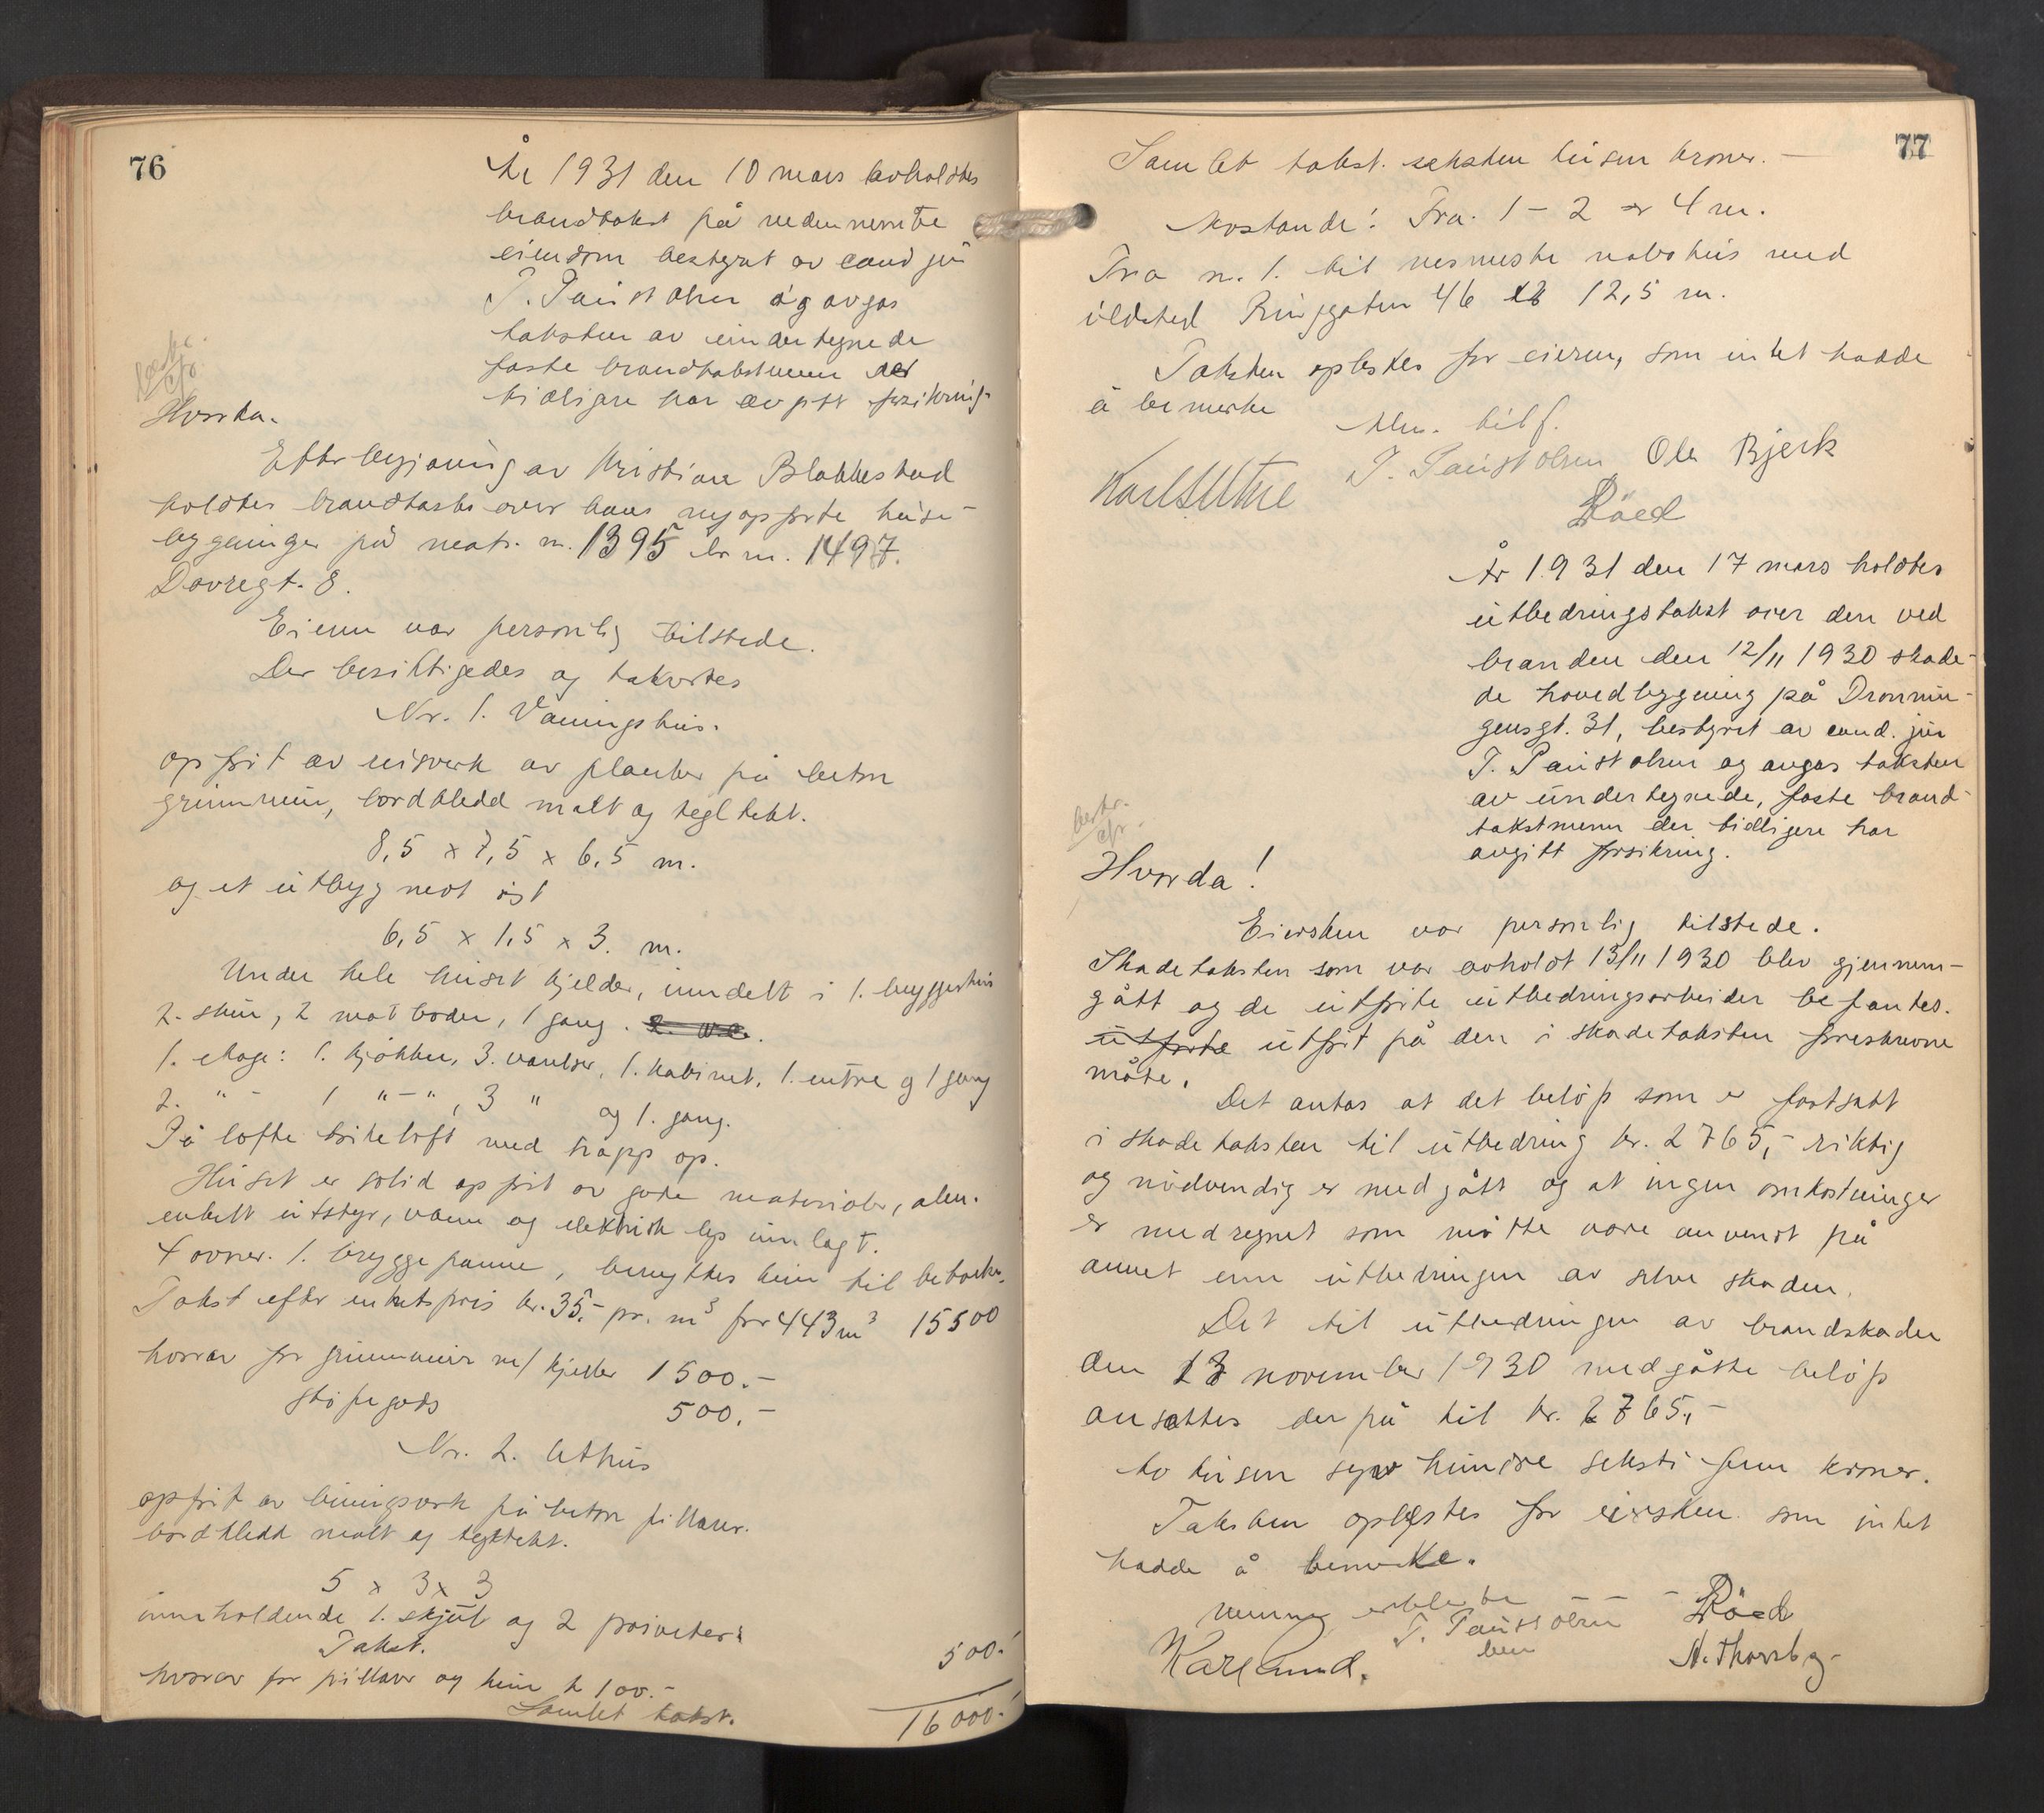 76
År 1931 den 10 mars avholdtes
brandtakst på nedennevnte
eiendom bestyret av cand jur
T. Paust Olsen og avgas
taksten av undertegnede
faste brandtakstmenn der
tidligere har avgitt forsikring.
Hvorda.
Efter begjæring av Kristian Blakkestad
holdtes brandtakst over hans nyopførte huse-
bygninger på matr. nr. 1395 br nr. 1497.
Dovregt. 8.
Eieren var personlig tilstede.
Der besiktigedes og takertes
Nr. 1. Våningshus.
opført av reisverk av planker på beton
grunnmur, bordkledd malt og tegltekt.
8,5 x 7,5 x 6,5 m.
og et utbygg mot øst
6,5 x 1,5 x 3. m.
Under hele huset kjelder, inndelt i 1. bryggerhus
2. skur, 2 mat boder, 1 gang.
1. etage: 1. kjøkken, 3. værelser, 1. kabinet, 1. entre og 1 gang
2. " - 1 " - ", 3 " og 1. gang.
På lofte tørkeloft med trapp op.
Huset er solid opført av gode materialer, alm.
enkelt utstyr, vann og elektrisk lys innlagt.
4 ovner. 1. bryggepanne, benyttes kun til beboelse.
Takst efter enhetspris kr. 35,- pr. m³ for 443 m³ 15500
hvorav for grunnmur m/ kjelder 1500.-
støpegods 500.-
Nr. 2. Uthus
opført av bindingsverk på beton pillarer.
bordkledd malt og tegltekt.
5 x 3 x 3
inneholdende 1. skjul og 2 priveter.
Takst. 500.-
hvorav for pillarer og kun k 100.-
Samlet takst. 16000.-
77
Samlet takst. seksten tusen kroner. -
Avstande: Fra. 1 - 2 er 4 m.
Fra nr. 1. til nermeste nabohus med
ildsted Ringgaten 46 12,5 m.
Taksten oplestes for eieren, som intet hadde
å bemerke
Alm. tilf.
T. Paust Olsen Ole Bjerk
Röed
År 1931 den 17 mars holdtes
utbedringstakst over den ved
branden den 12/11 1930 skade-
de hovedbygning på Dronnin-
gensgt. 31, bestyret av cand. jur
T. Paust Olsen og avgas taksten
av undertegnede, faste brand-
takstmenn der tidligere har
avgitt forsikring.
Hvorda!
Eiersken var personlig tilstede.
Skadetaksten som var avholdt 13/11 1930 blev gjennem-
gått og de utførte utbedringsarbeider befantes.
utførte utført på den i skadetaksten foreskrevne
måte.
Det antas at det beløp som er fastsatt
i skadetaksten til utbedring kr. 2765,- riktig
og nødvendig er medgått og at ingen omkostninger
er medregnet som måtte være anvendt på
annet enn utbedringen av selve skaden.
Det til utbedringen av brandskaden
den 13 november 1930 medgåtte beløp
ansattes derpå til kr. 2765,-
to tusen syv hundre seksti fem kroner.
Taksten oplestes for eiersken som intet
hadde å bemerke.
T. Paust Olsen Röed
Karl Lund. N. Thorsby